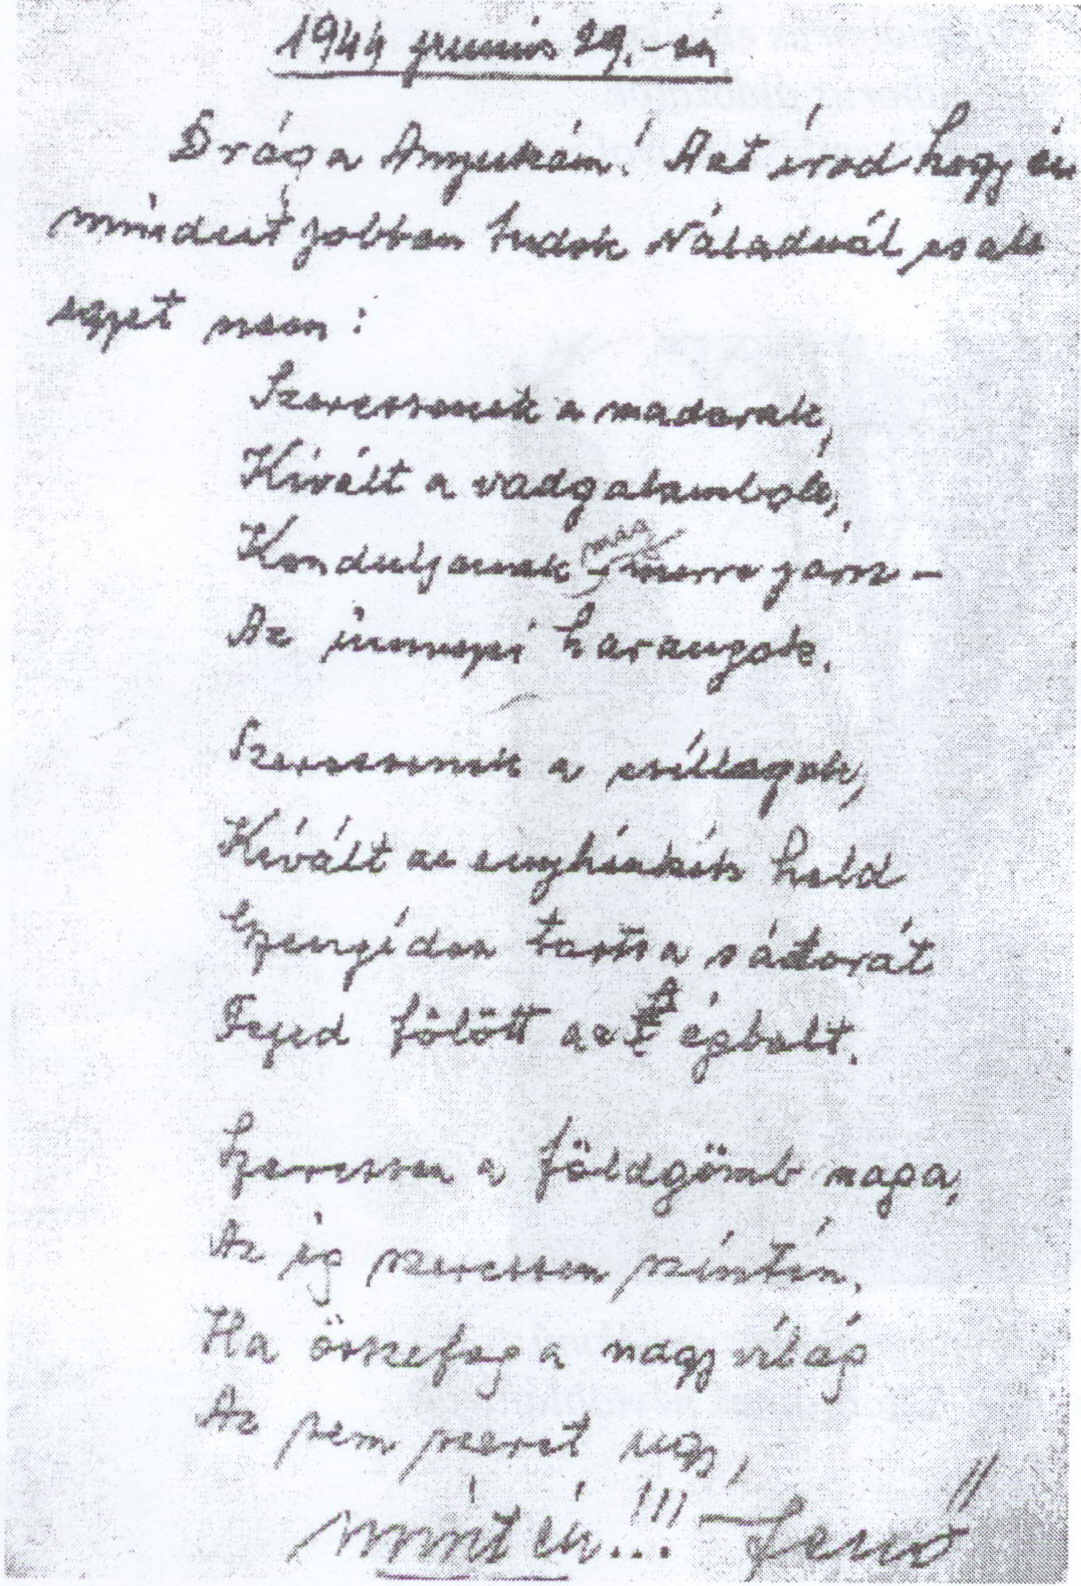 1944 junius 29.-én
Drága Anyukám! Azt írod hogy én
mindent jobban tudok Náladnál csak
egyet nem:
Szeressenek a madarak,
Kivált a vadgalambok,
Konduljanak merre jársz -
Az ünnepi harangok.
Szeressenek a csillagok,
Kivált az enyhénkék hold
Gyengéden tartsa sátorát
Fejed fölött az égbolt.
Szeressen a földgömb maga,
Az ég szeressen szintén,
Ha összefog a nagy világ
Az sem szeret ugy,
mint én!!! Jenő